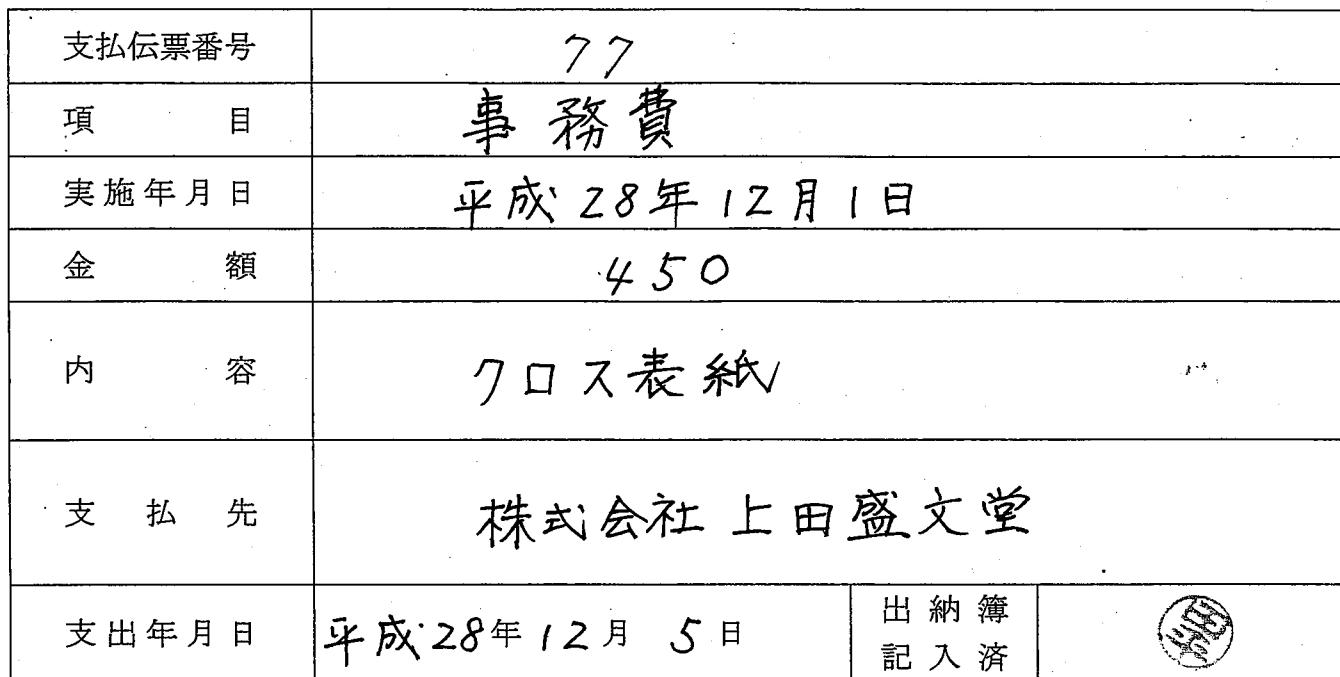 支払伝票番号 77
項目 事務費
実施年月日 平成28年12月1日
金額 450
内容 クロス表紙
支払先 株式会社 上田盛文堂
支出年月日 平成28年12月5日 出納簿
記入済